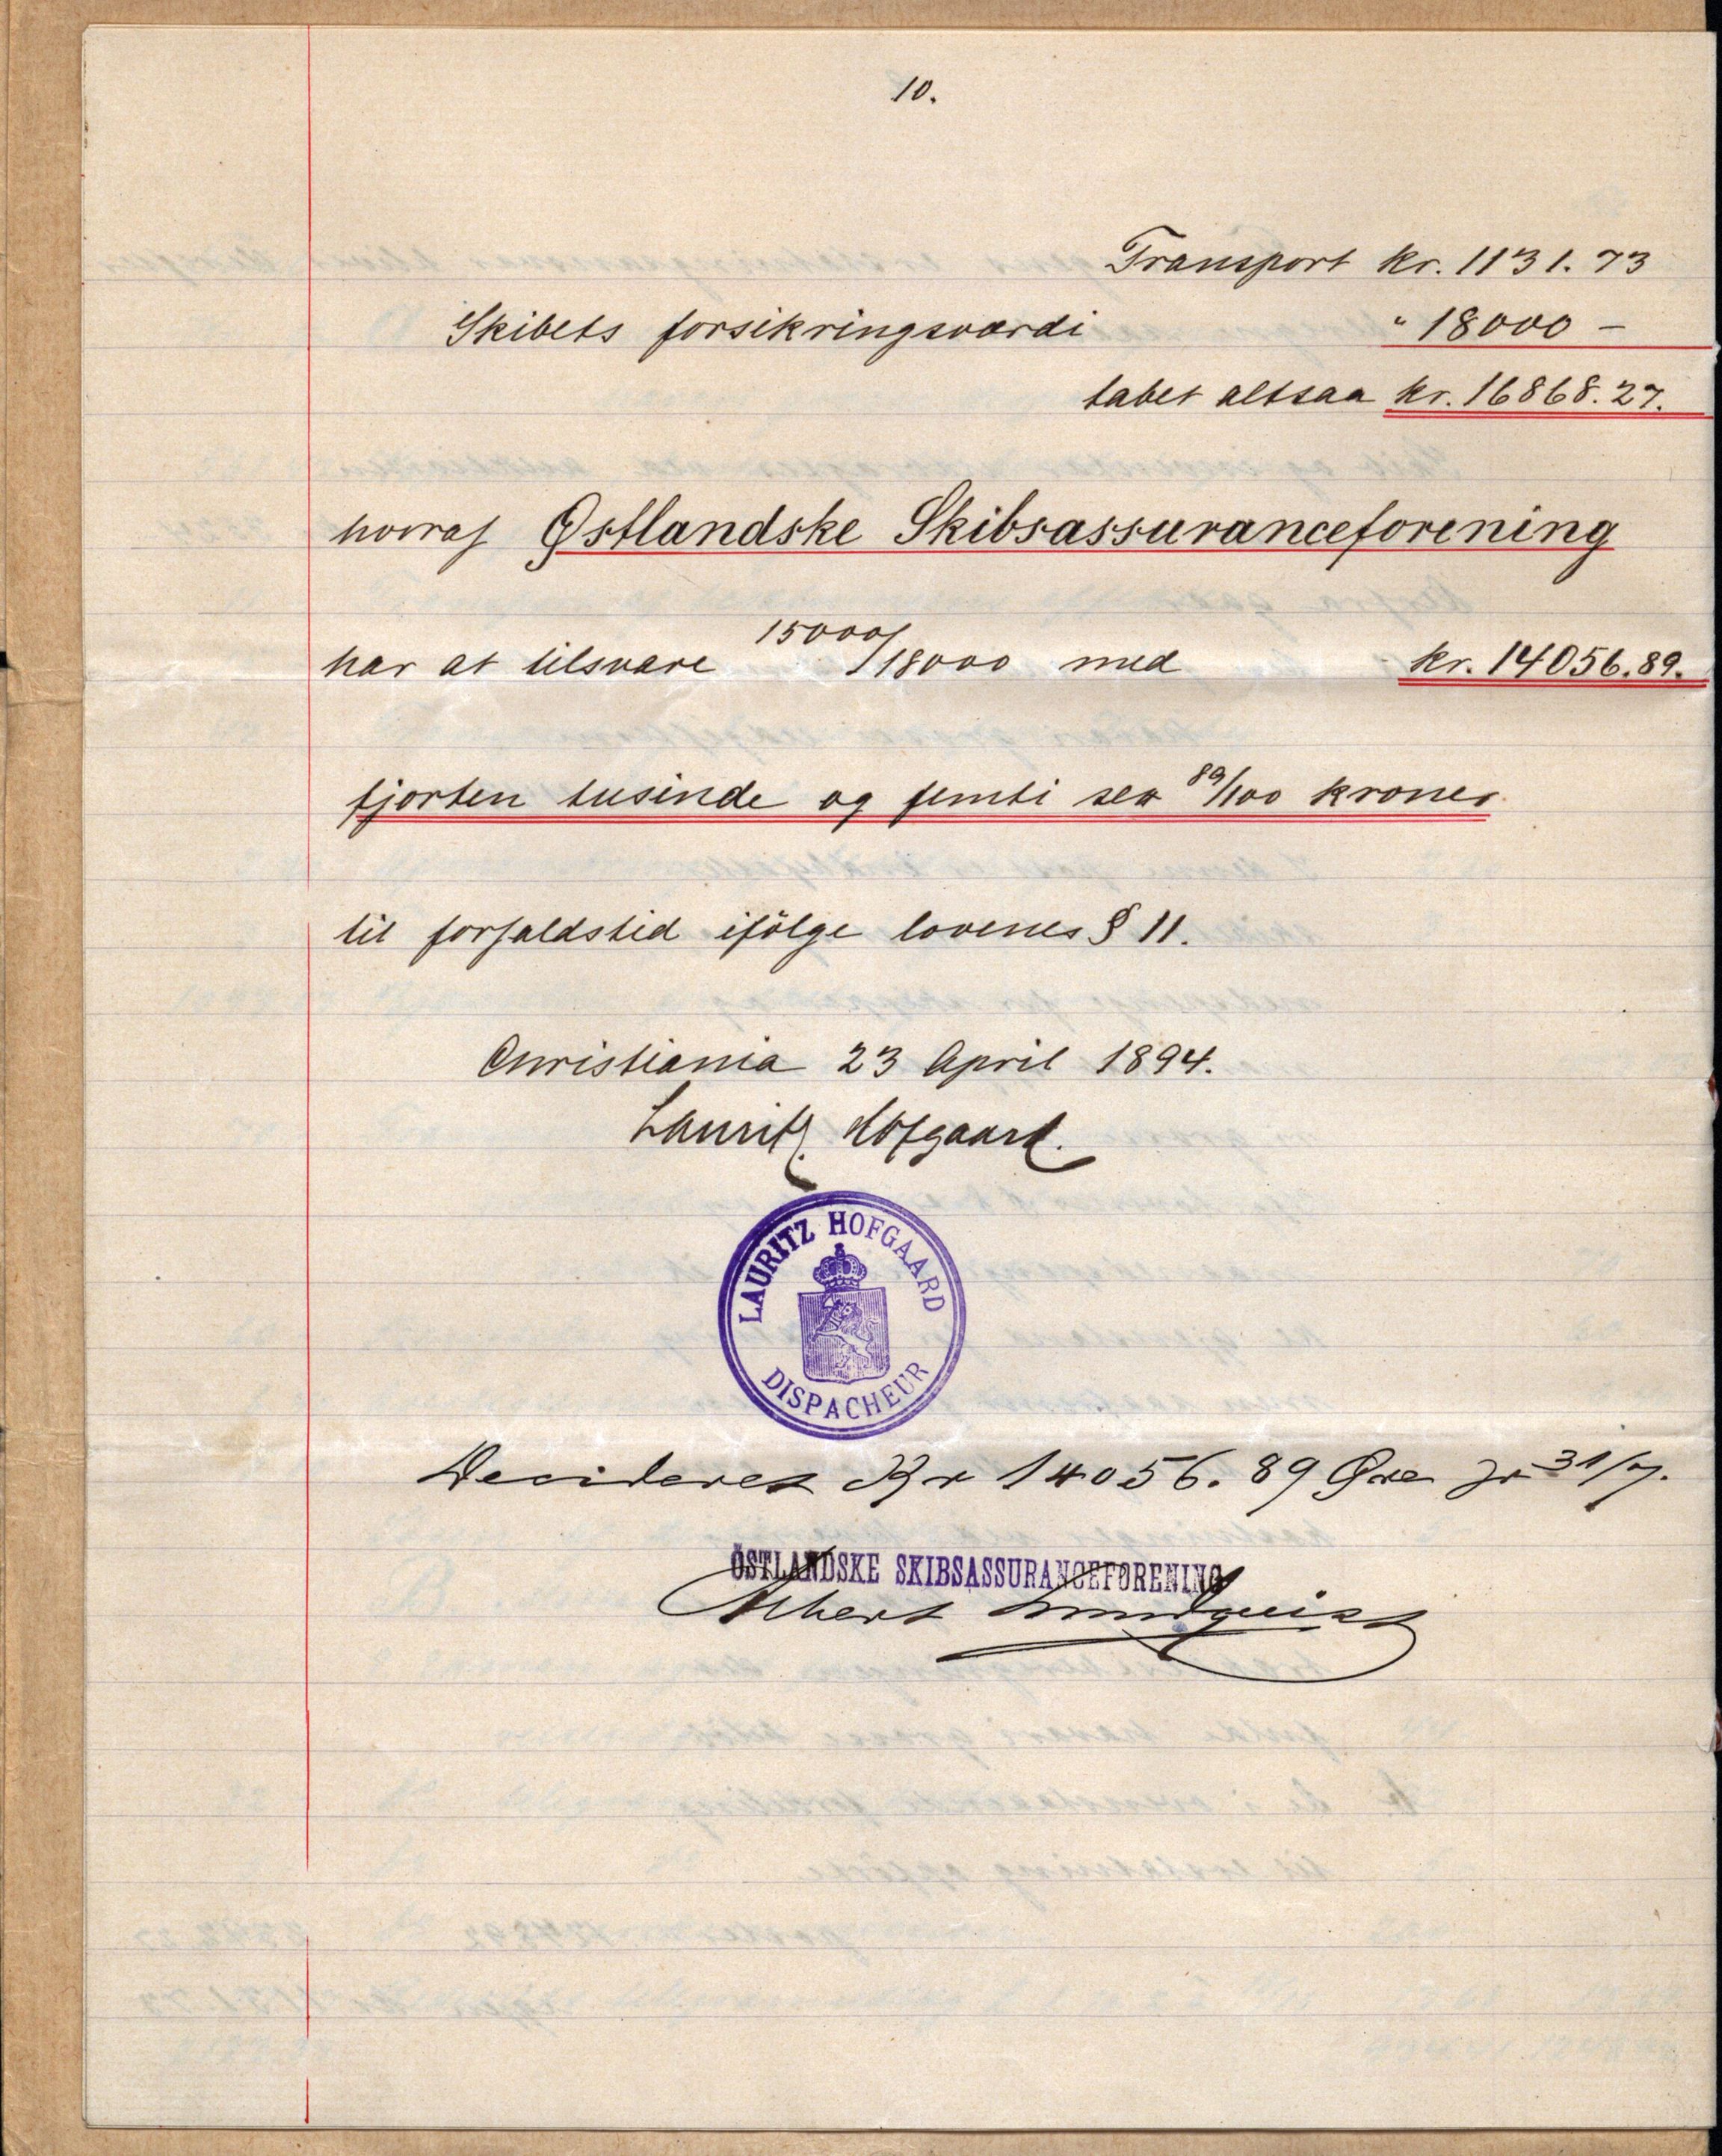 10.
Transport kr. 1131.73
Skibets forsikringsværdi " 18000 –
tabet altsaa kr. 16868.27.
hvoraf Østlandske Skibsassuranceforening
har at tilsvare 15000/18000 med kr. 14056.89.
fjorten tusinde og femti sex 89/100 kroner
til forfaldstid ifölge lovenes § 11.
Christiania 23 April 1894.
Lauritz Hofgaard.
LAURITZ HOFGAARD
DISPACHEUR
Decideres Kr 14056.89 Øre pr 31/7.
ÖSTLANDSKE SKIBSASSURANCEFORENING
Albert Lundquist